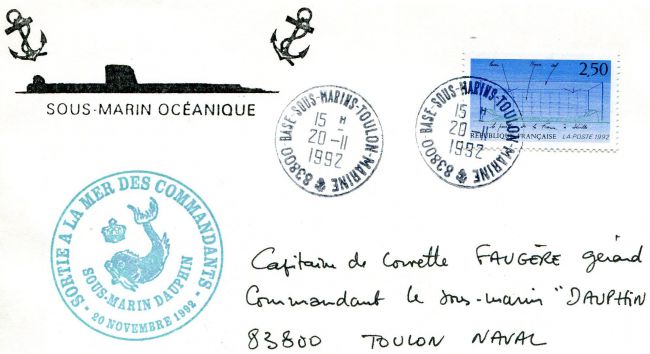 SOUS-MARIN OCÉANIQUE
83800 - BASE-SOUS-MARINS-TOULON-MARINE
15 H
20 -11
1992
83800 - BASE-SOUS-MARINS-TOULON-MARINE
15 H
20 -11
1992
2,50
de la France à Séville
RÉPUBLIQUE FRANÇAISE LA POSTE 1992
SORTIE A LA MER DES COMMANDANTS
SOUS-MARIN DAUPHIN
- 20 NOVEMBRE 1992 -
Capitaine de Corvette FAUGÈRE Gérard
Commandant le sous-marin "DAUPHIN
83800 TOULON NAVAL